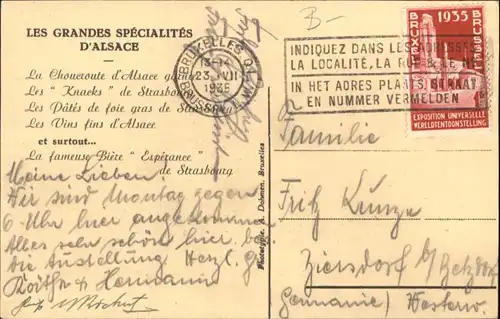 LES GRANDES SPÉCIALITÉS
D'ALSACE
La Choucroute d'Alsace
Les "Knacks" de Strasbourg
Les Pâtés de foie gras de Stras
Les Vins fins d'Alsace
et surtout...
La fameuse Bière "Espérance"
de Strasbourg
Meine Lieben!
Wir sind Montag gegen
6 Uhr hier angekommen
Alles sehr schön hier.
die Austellung Herzl. Gr.
Hermann
Phototypie A. Dohmen, Bruxelles
BRUXELLES
13-14
23 VII
1935
BRUSSEL
B-
INDIQUEZ DANS LES ADRESSES
LA LOCALITÉ, LA RUE & LE No
IN HET ADRES PLAATS, STRAAT
EN NUMMER VERMELDEN
1935
BRUXELLES
BRUSSEL
EXPOSITION UNIVERSELLE
WERELDTENTOONSTELLING
Familie
Fritz Kunze
Ziersdorf b/ Betzdorf
Germanie) Westerw.